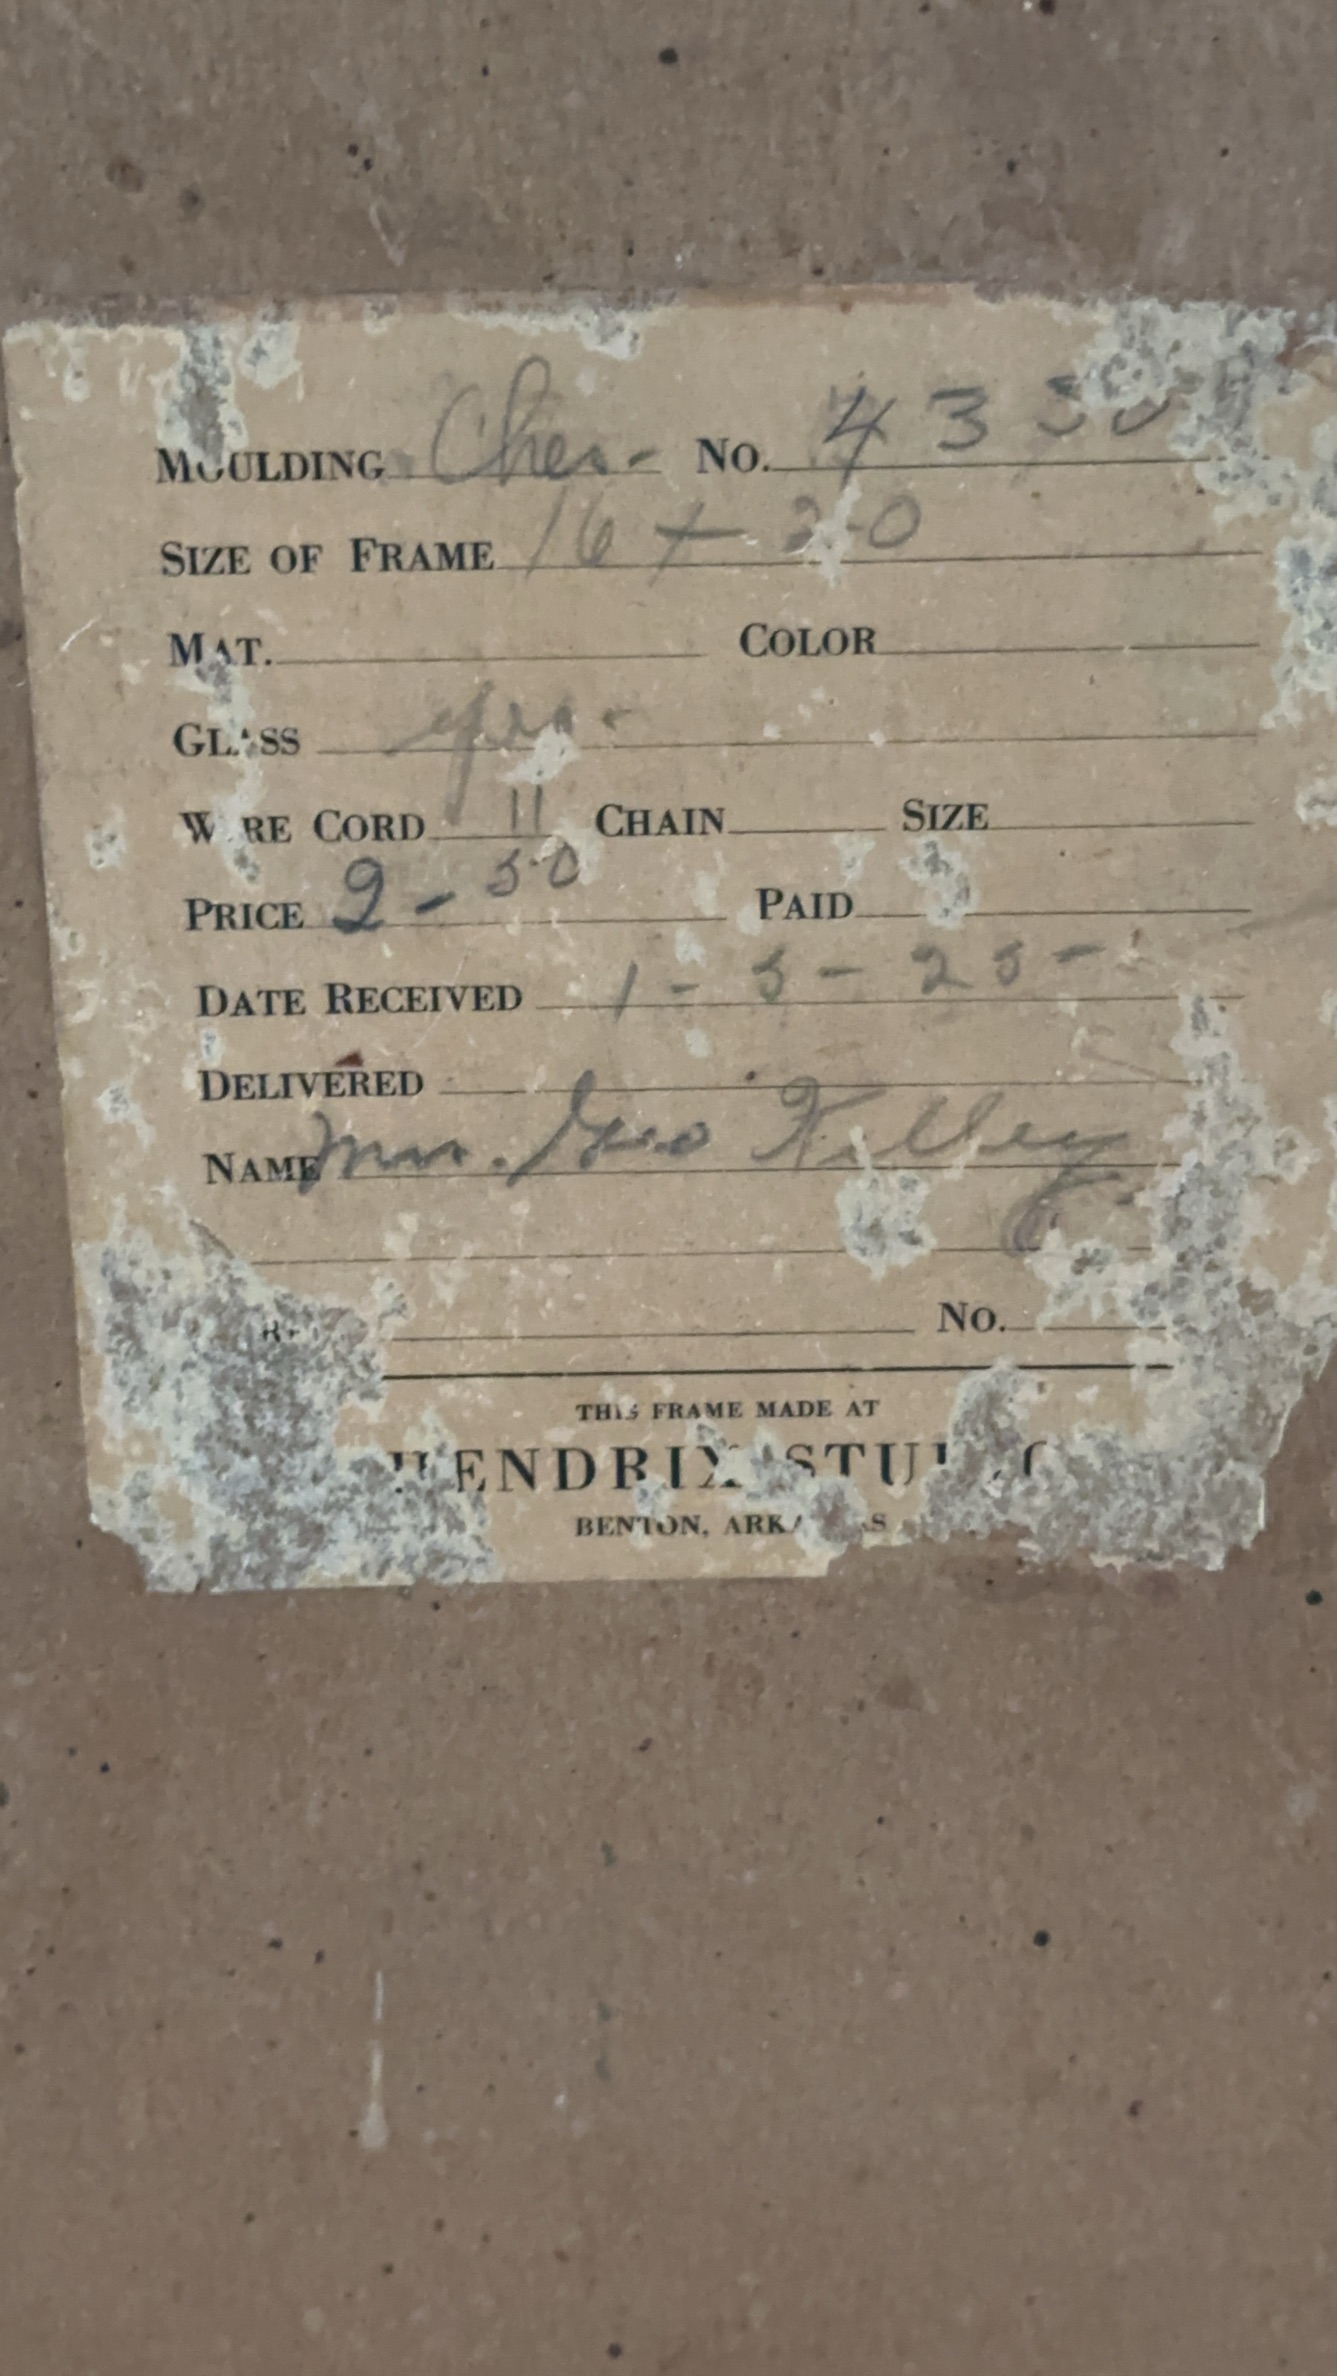 MOULDING Ches- No. 4350
SIZE OF FRAME 16 x 20
MAT. COLOR
GLASS yes.
WIRE CORD 11 CHAIN SIZE
PRICE 2-50 PAID
DATE RECEIVED 1-5-25-
DELIVERED
NAME Mrs. Geo Kelley
No.
THIS FRAME MADE AT
HENDRIX STUDIO
BENTON, ARKANSAS